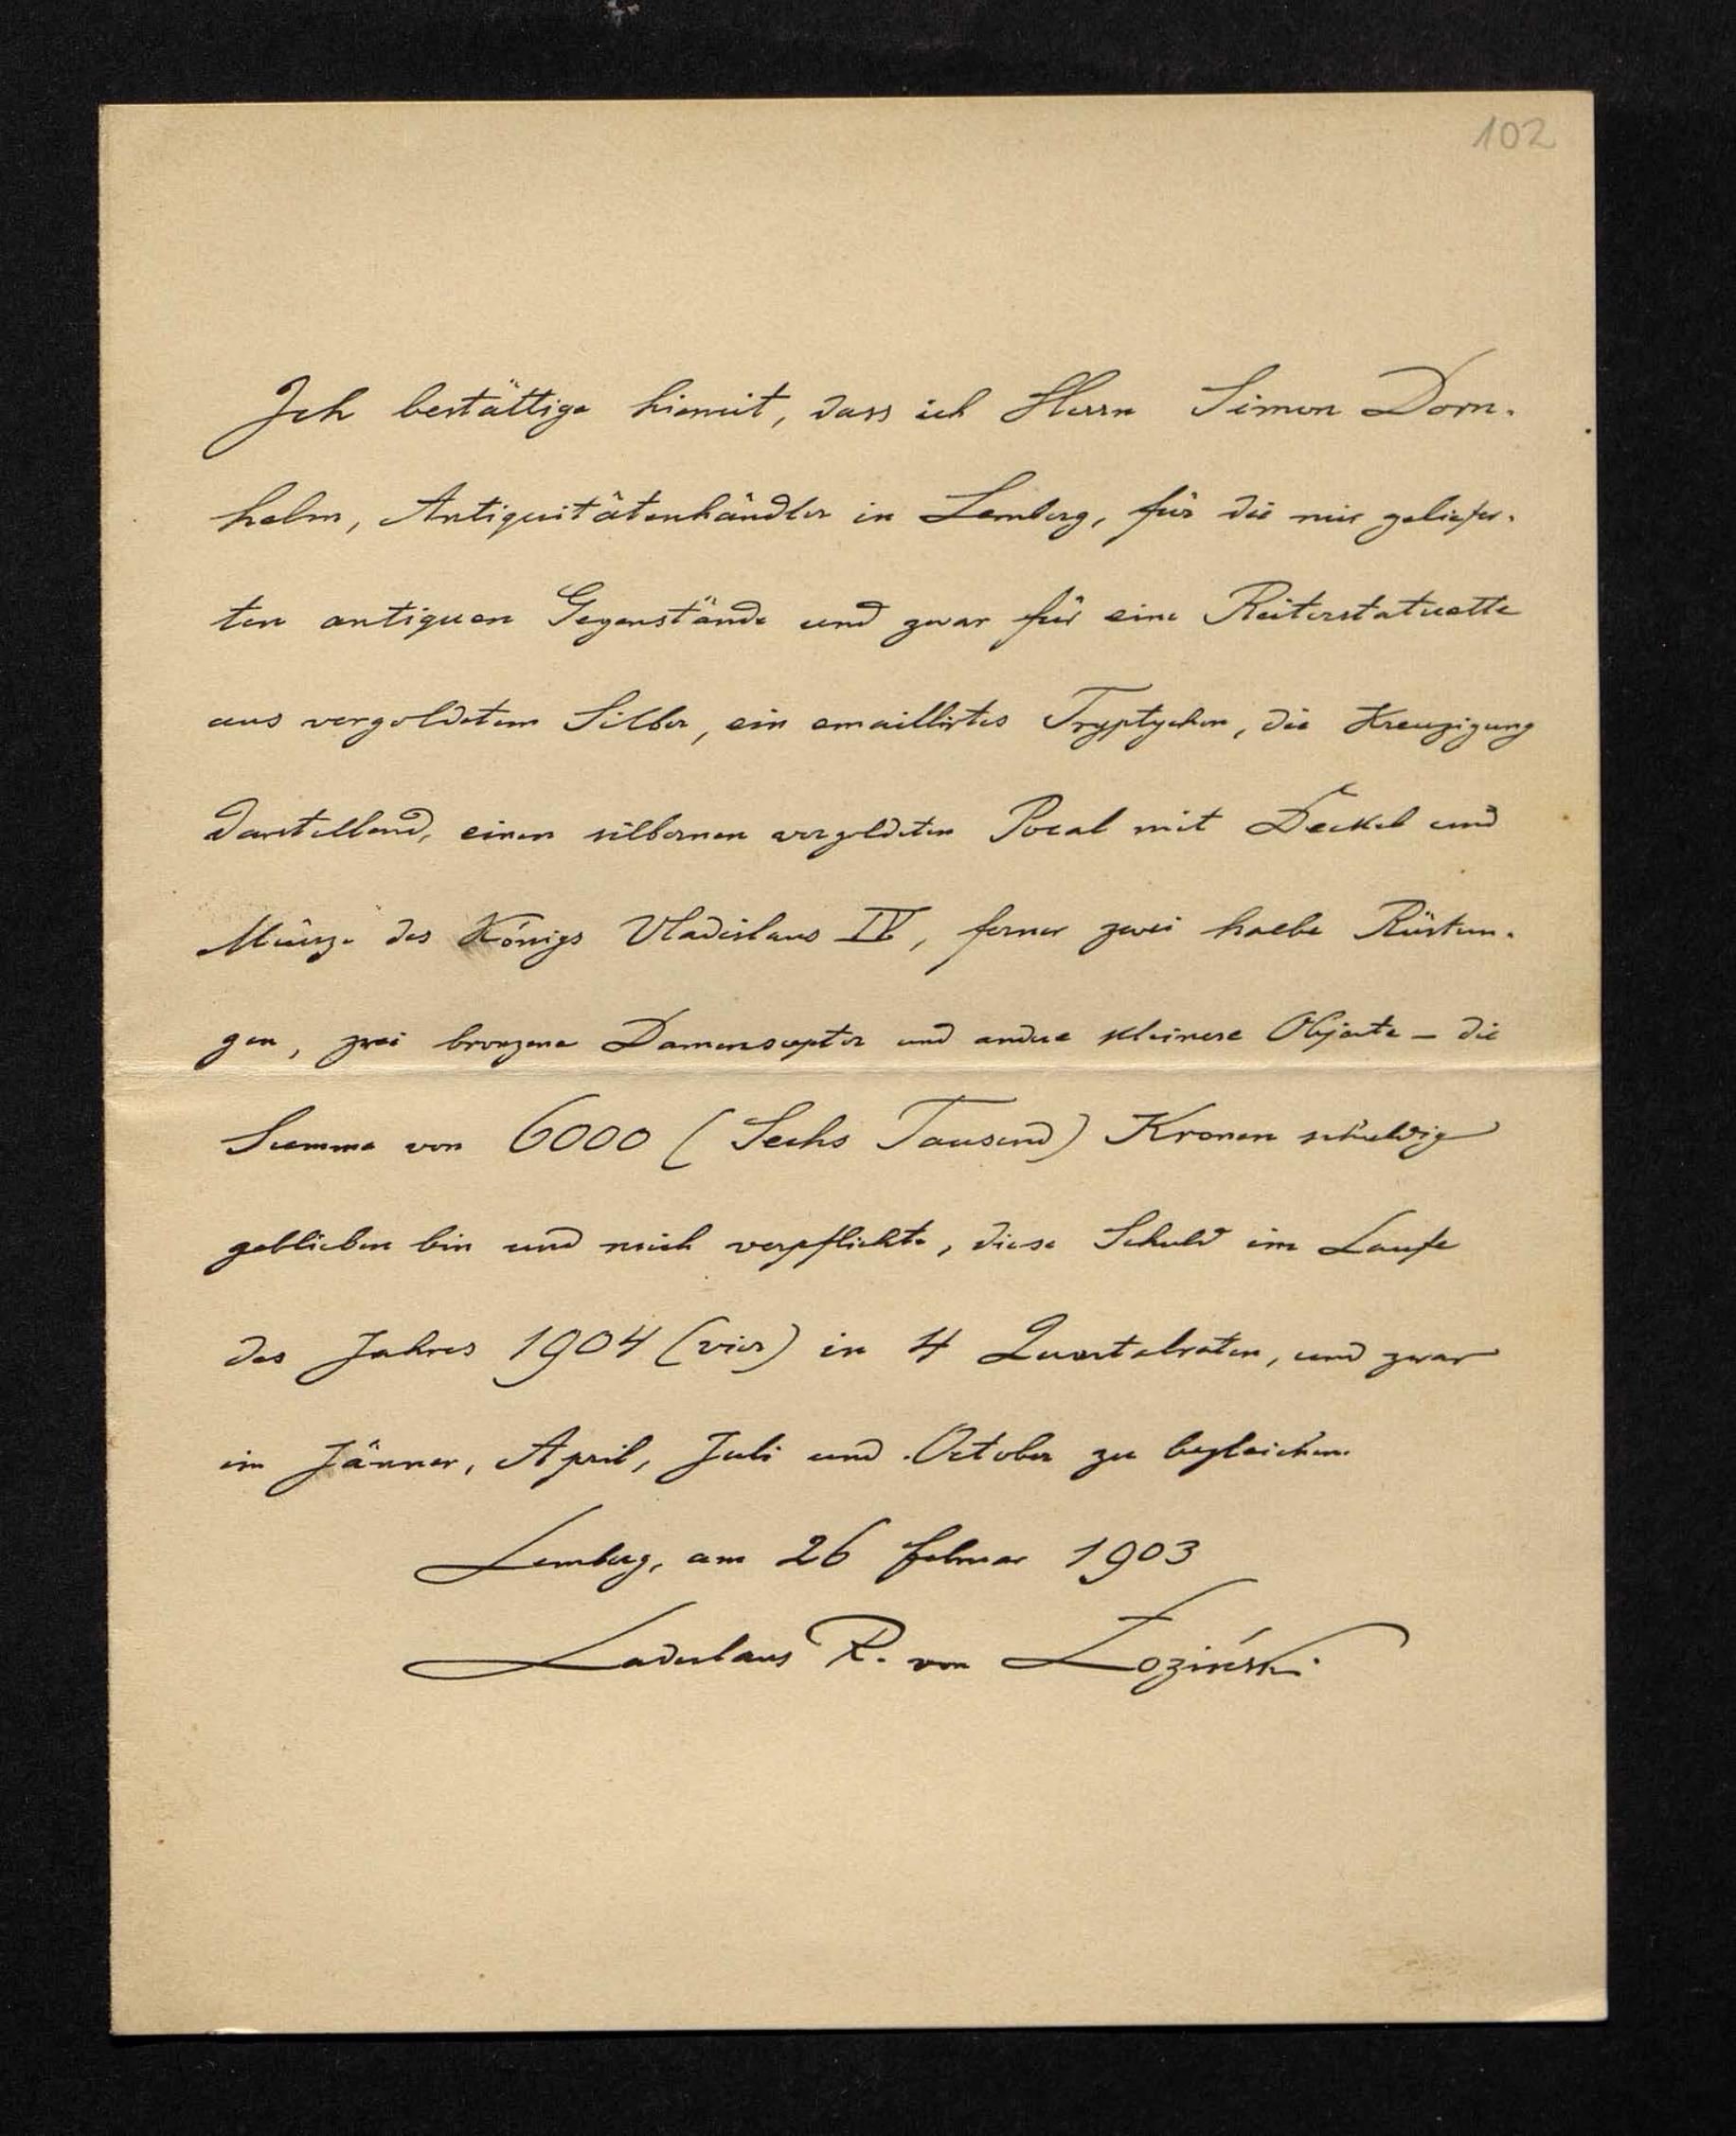 102
Ich bestättige hiemit, dass ich Herrn Simon Dorn-
helm, Antiquitätenhändler in Lemberg, für die mir geliefer-
ten antiquen Gegenstände und zwar für eine Reiterstatuette
aus vergoldetem Silber, ein emaillirtes Tryptychon, die Kreuzigung
darstellend, einen silbernen vergoldeten Pocal mit Deckel und
Münze des Königs Vladislaus IV, ferner zwei halbe Rüstun-
gen, zwei bronzene und andere kleinere Objecte – die
Summe von 6000 (Sechs Tausend) Kronen schuldig
geblieben bin und mich verpflichte, diese Schuld im Laufe
des Jahres 1904 (vier) in 4 Quartalraten, und zwar
im Jänner, April, Juli und October zu begleichen.
Lemberg, am 26 Februar 1903
Ladislaus R. von Łoziński